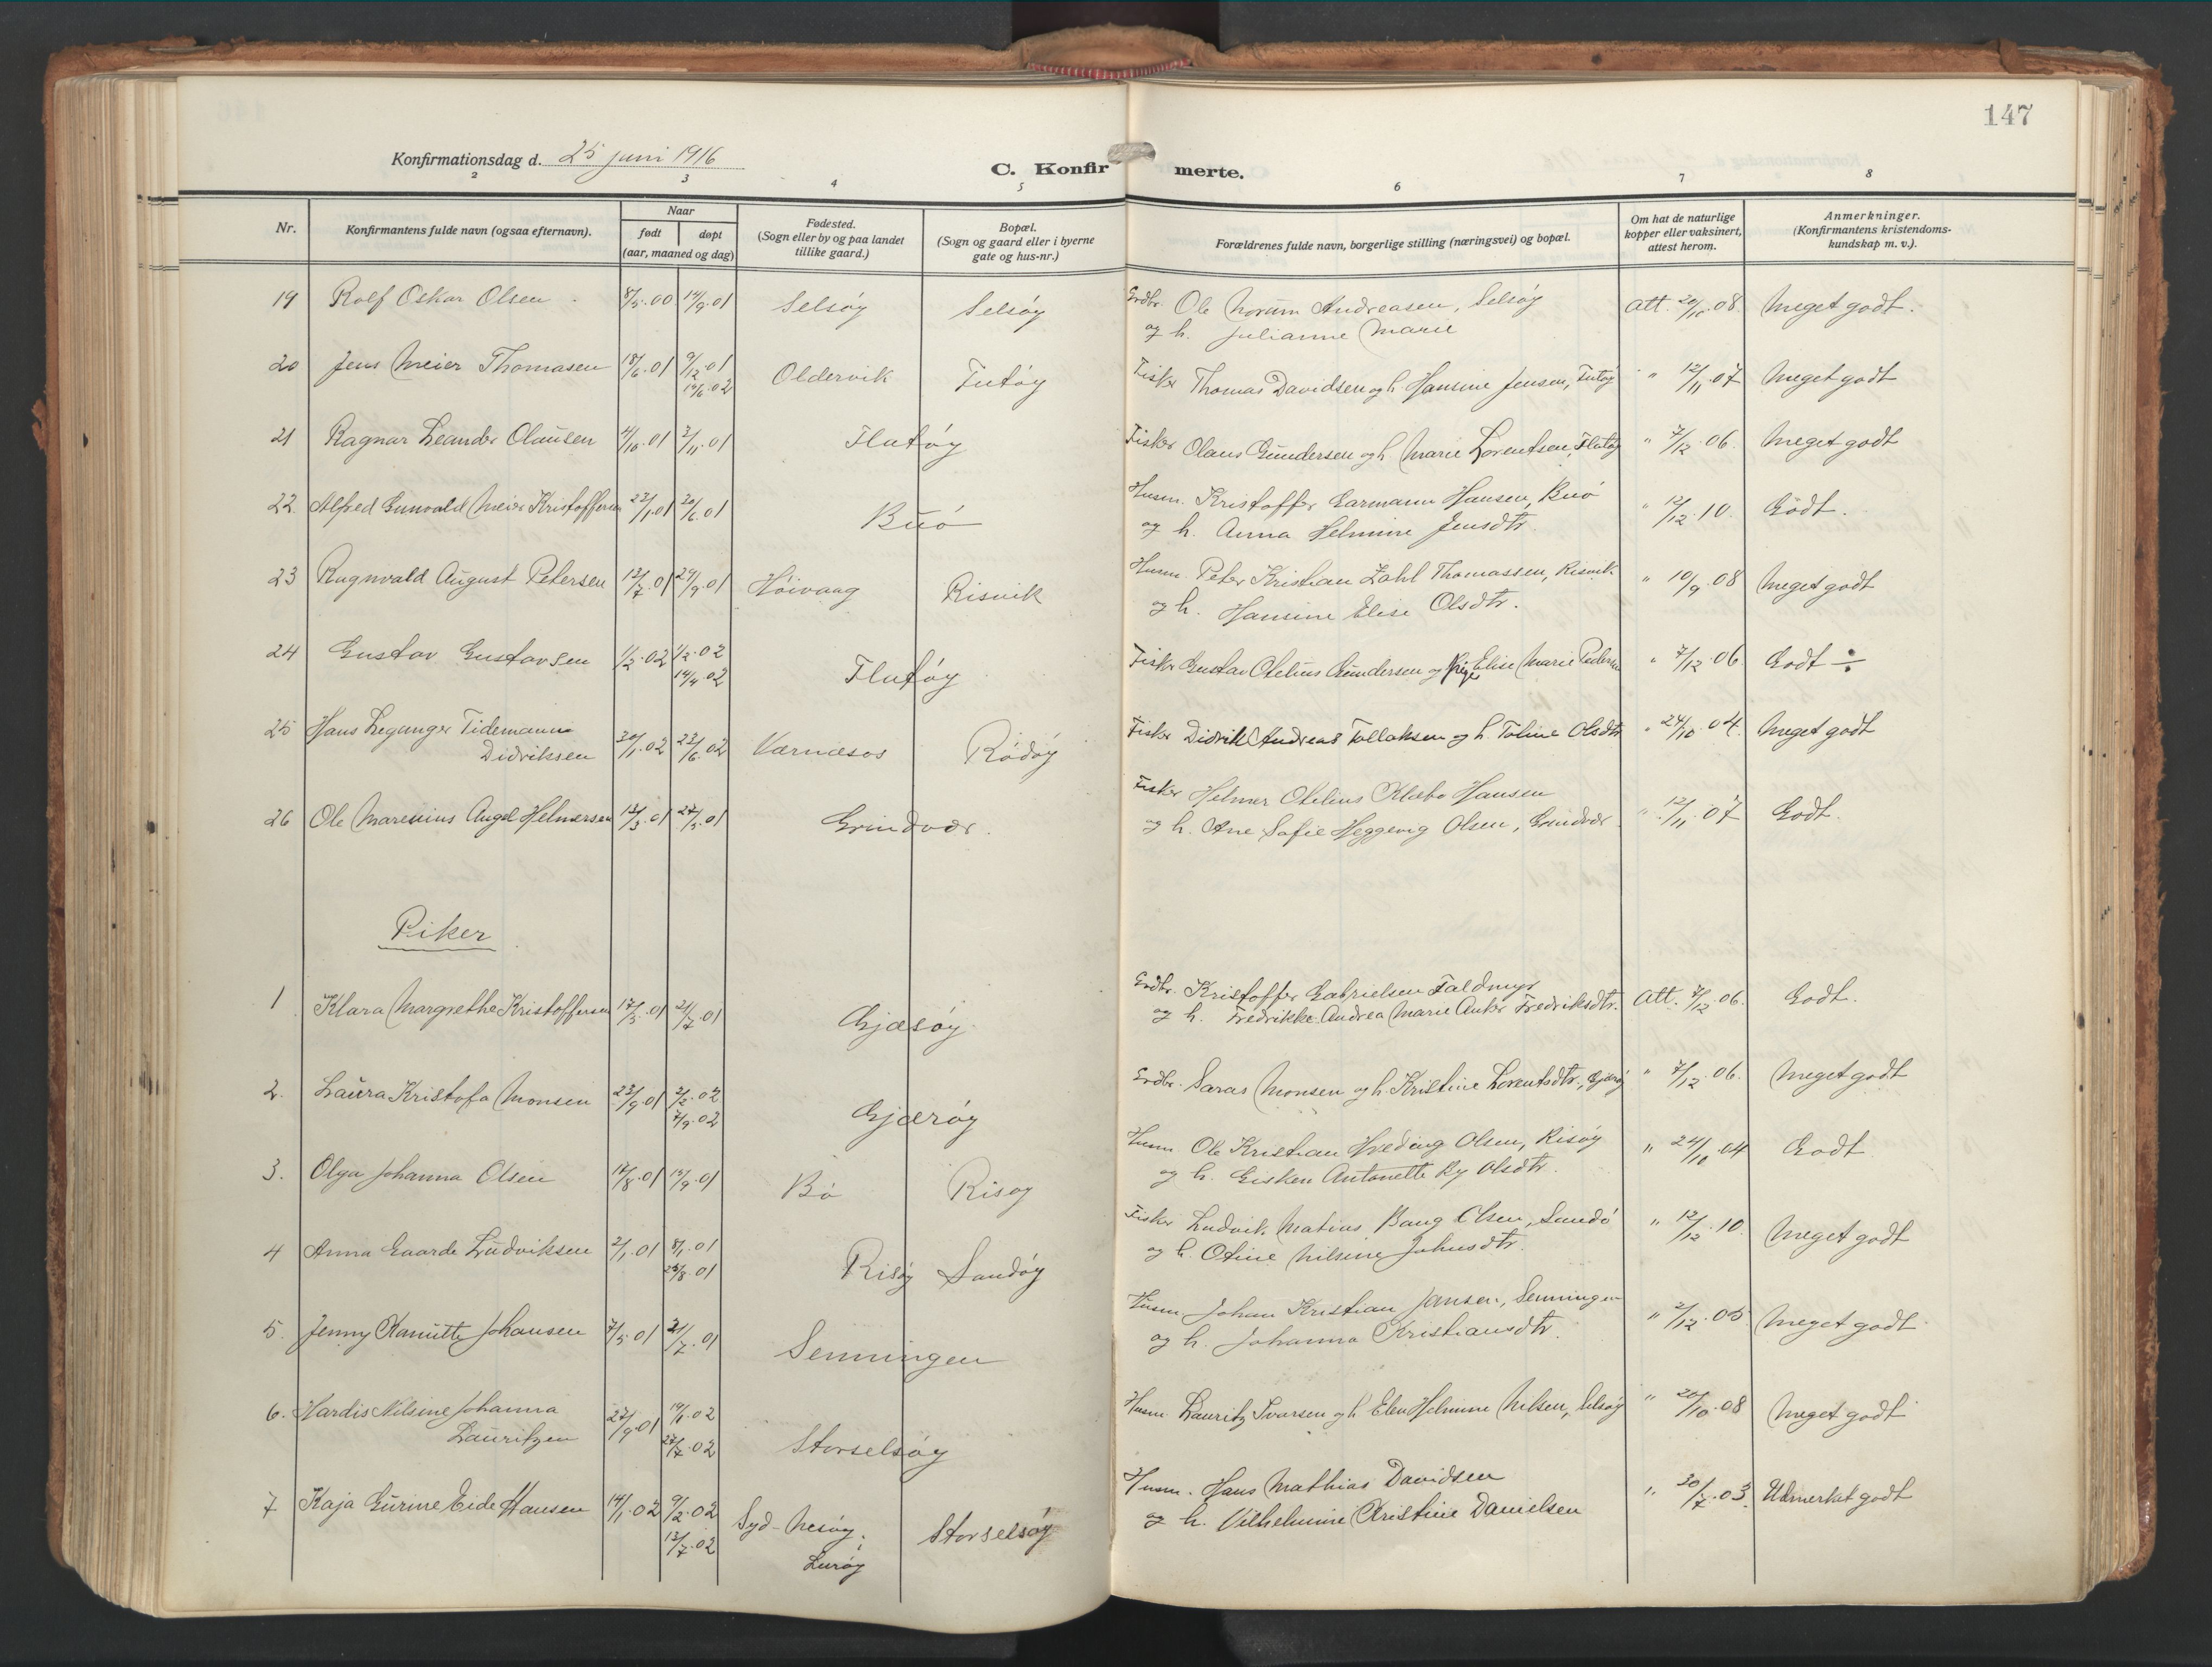 147
Konfirmationsdag d. 25 juni 1916
C. Konfir merte.
2 3 4 5 6 7 8
Nr.
Konfirmantens fulde navn (ogsaa efternavn).
Naar
født døpt
(aar, maaned og dag)
Fødested.
(Sogn eller by og paa landet
tillike gaard.)
Bopæl.
(Sogn og gaard eller i byerne
gate og hus-nr.)
Forældrenes fulde navn, borgerlige stilling (næringsvei) og bopæl.
Om hat de naturlige
kopper eller vaksinert,
attest herom.
Anmerkninger.
(Konfirmantens kristendoms-
kundskap m. v.).
19 Rolf Oskar Olsen 8/5.00 14/9.01 Selsøy Selsøy Grdbr. Ole Norum Andreasen, Selsøy Att. 20/10.08 Meget godt.
og h. Julianne Marie
20 Jens Meier Thomasen 18/6.01 9/12.01 Oldervik Tutøy Fisker Thomas Davidsen og h. Hansine Jensen, Tutøy " 12/11.07 Meget godt
19/6.02
21 Ragnar Leander Olausen 4/10.01 3/11.01 Flatøy Fisker Olaus Gundersen og h. Marie Lorentsen, Flatøy " 7/12.06. Meget godt
22 Alfred Gunvald Meier Kristoffersen 23/1.01 30/6.01 Buö Husm. Kristoffer Garmann Hansen, Buö " 12/12.10. Godt.
og h. Anna Helmine Jensdtr.
23 Ragnvald August Petersen 13/7.01 29/9.01 Høivaag Risvik Husm. Peter Kristian Zahl Thomassen, Risvik " 10/9.08 Meget godt
og h. Hansine Elise Olsdtr.
24 Gustav Gustavsen 1/2.02 1/2.02 Flatøy Fisker Gustav Otelius Gundersen og Pige Elise Marie Pedersen " 7/12.06. Godt ÷
14/4.02
25 Hans Leganger Tidemann
Didriksen 30/1.02 23/6.02 Værnæsos Rødøy Fisker Didrik Andreas Tollaksen og h. Toline Olsdtr " 24/10.04. Meget godt
26 Ole Marenius Angel Helmersen 13/3.01 27/5.01 Grindvær. Fisker Helmer Otelius Klæbo Hansen " 12/11.07 Godt.
og h. Ane Sofie Heggevig Olsen, Grindvær
Piker
1 Klara Margrethe Kristoffersen 17/5.01 21/7.01 Gjæsøy. Grdbr. Kristoffer Gabrielsen Faldmyr Att. 7/12.06. Godt.
og h. Fredrikke Andrea Marie Anker Fredriksdtr.
2. Laura Kristofa Monsen 23/9.01 2/2.02 Gjærøy Grdbr. Saras Monsen og h. Kristine Lorentsdtr., Gjærøy " 7/12.06. Meget godt
7/9.02
3. Olga Johanna Olsen 17/8.01 15/9.01 Bö Risøy Husm. Ole Kristian Hveding Olsen, Risøy " 24/10.04 Godt
og h. Gisken Antonette Ry Olsdtr.
4 Anna Gaarde Ludviksen 2/1.01 8/1.01 Risøy Sandøy Fisker Ludvik Matius Bang Olsen, Sandö " 12/12.10. Meget godt
25/8.01
og h. Otine Nilsine Johnsdtr.
5. Jenny Kanutte Johansen 7/5.01 21/7.01 Senningen Husm. Johan Kristian Jansen, Senningen " 2/12.05 Meget godt
og h. Johanna Kristiansdtr.
6. Hardis Nilsine Johanna
Lauritzen 27/9.01 19/1.02 Storselsøy Husm. Lauritz Ivarsen og h. Elen Helmine Nilsen, Selsøy " 20/10.08 Meget godt
27/7.02
7 Kaja Gurine Eide Hansen 14/1.02 9/2.02 Syd-Nesøy, Storselsøy Husm. Hans Mathias Davidsen " 30/7.03. Udmerket godt
13/7.02 Lurøy
og h. Vilhelmine Kristine Danielsen